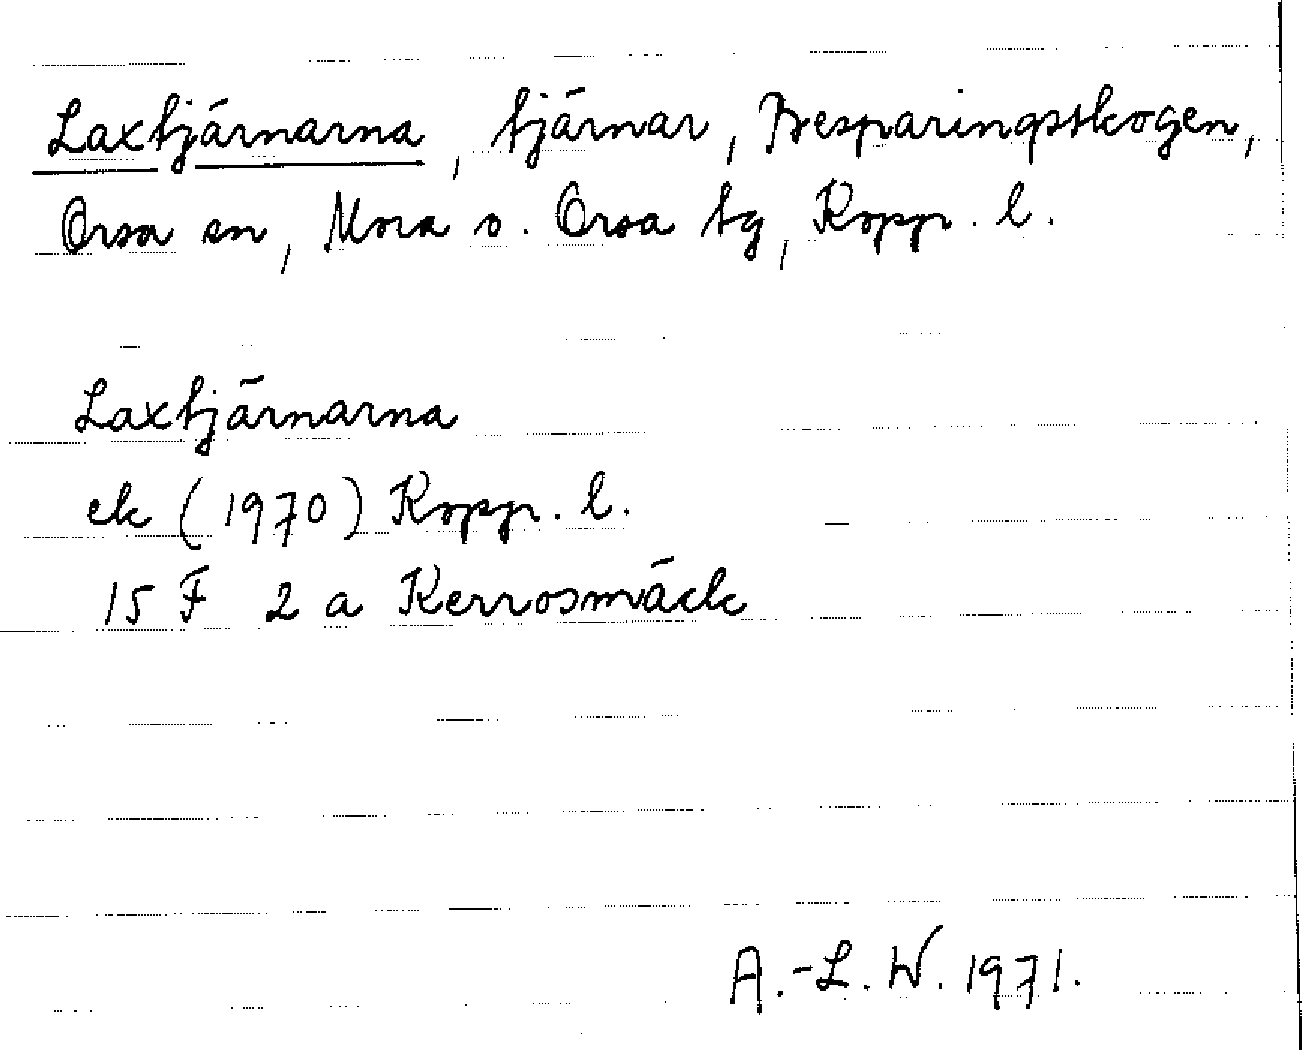 Laxtjärnarna, tjärnar, Besparingsskogen,
Orsa sn, Mora o. Orsa tg, Kopp. l.
Laxtjärnarna
ek (1970) Kopp. l.
15 F 2 a Kerrosmäck
A.-L. W. 1971.